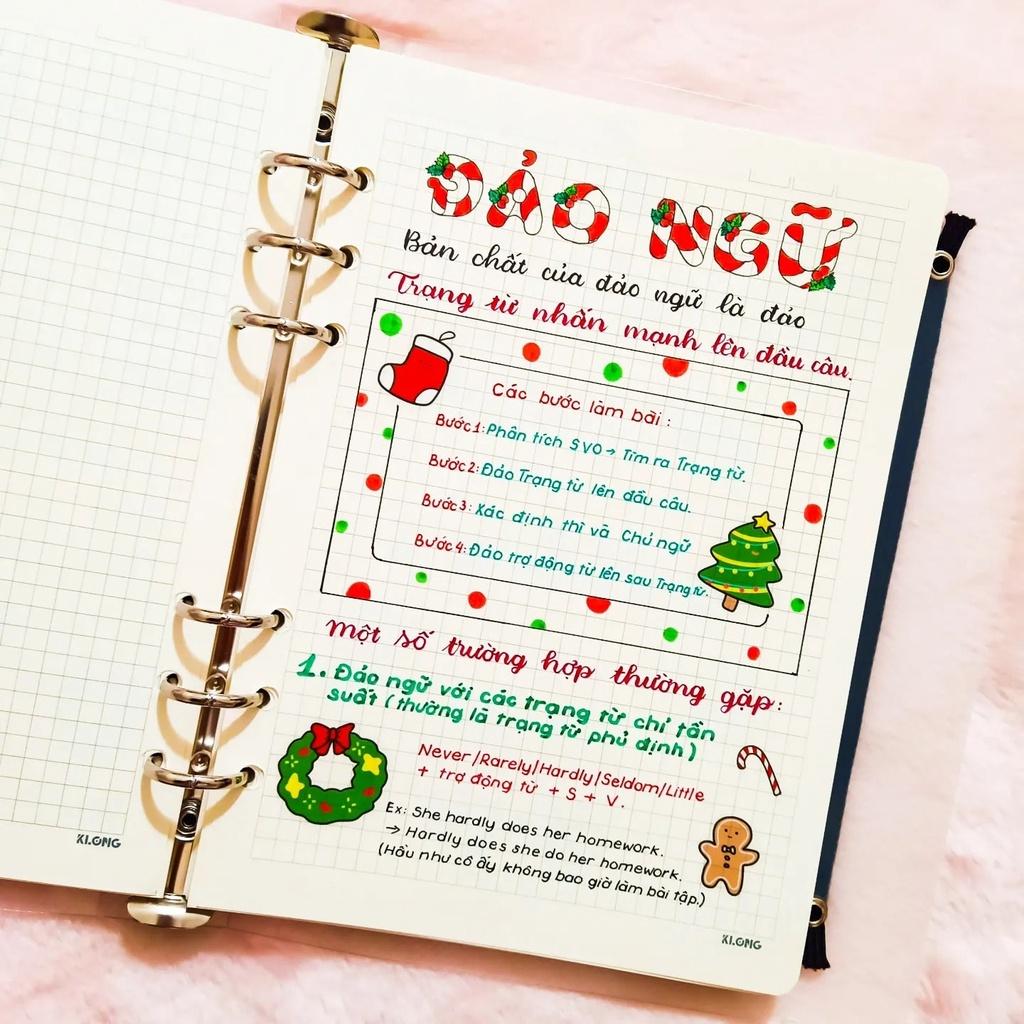 ĐẢO NGỮ
Bản chất của đảo ngữ là đảo
Trạng từ nhấn mạnh lên đầu câu.
Các bước làm bài:
Bước 1: Phân tích SVO → Tìm ra Trạng từ.
Bước 2: Đảo Trạng từ lên đầu câu.
Bước 3: Xác định thì và Chủ ngữ
Bước 4: Đảo trợ động từ lên sau Trạng từ.
Một số trường hợp thường gặp:
1. Đảo ngữ với các trạng từ chỉ tần
suất (thường là trạng từ phủ định)
Never/Rarely/Hardly/Seldom/Little
+ trợ động từ + S + V.
Ex: She hardly does her homework.
→ Hardly does she do her homework.
(Hầu như cô ấy không bao giờ làm bài tập.)
KLONG
KLONG